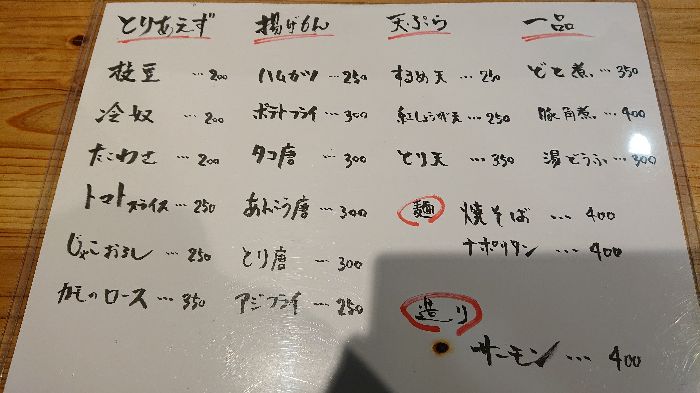 とりあえず
枝豆 … 200
冷奴 … 200
たこわさ … 200
トマトスライス … 250
じゃこおろし … 250
カモのロース … 350
揚げもん
ハムカツ … 250
ポテトフライ … 300
タコ唐 … 300
あんこう唐 … 300
とり唐 … 300
アジフライ … 250
天ぷら
するめ天 … 250
紅しょうが天 … 250
とり天 … 350
一品
どて煮 … 350
豚角煮 … 400
湯どうふ … 300
麺
焼そば … 400
ナポリタン … 400
造り
サーモン … 400